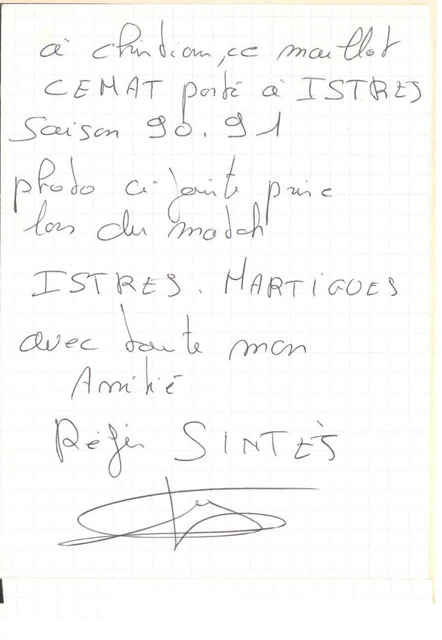 à christian, ce maillot
CEMAT porté à ISTRES
Saison 90.91
photo ci-jointe prise
lors du match
ISTRES. MARTIGUES
avec toute mon
Amitié
Régis SINTÈS